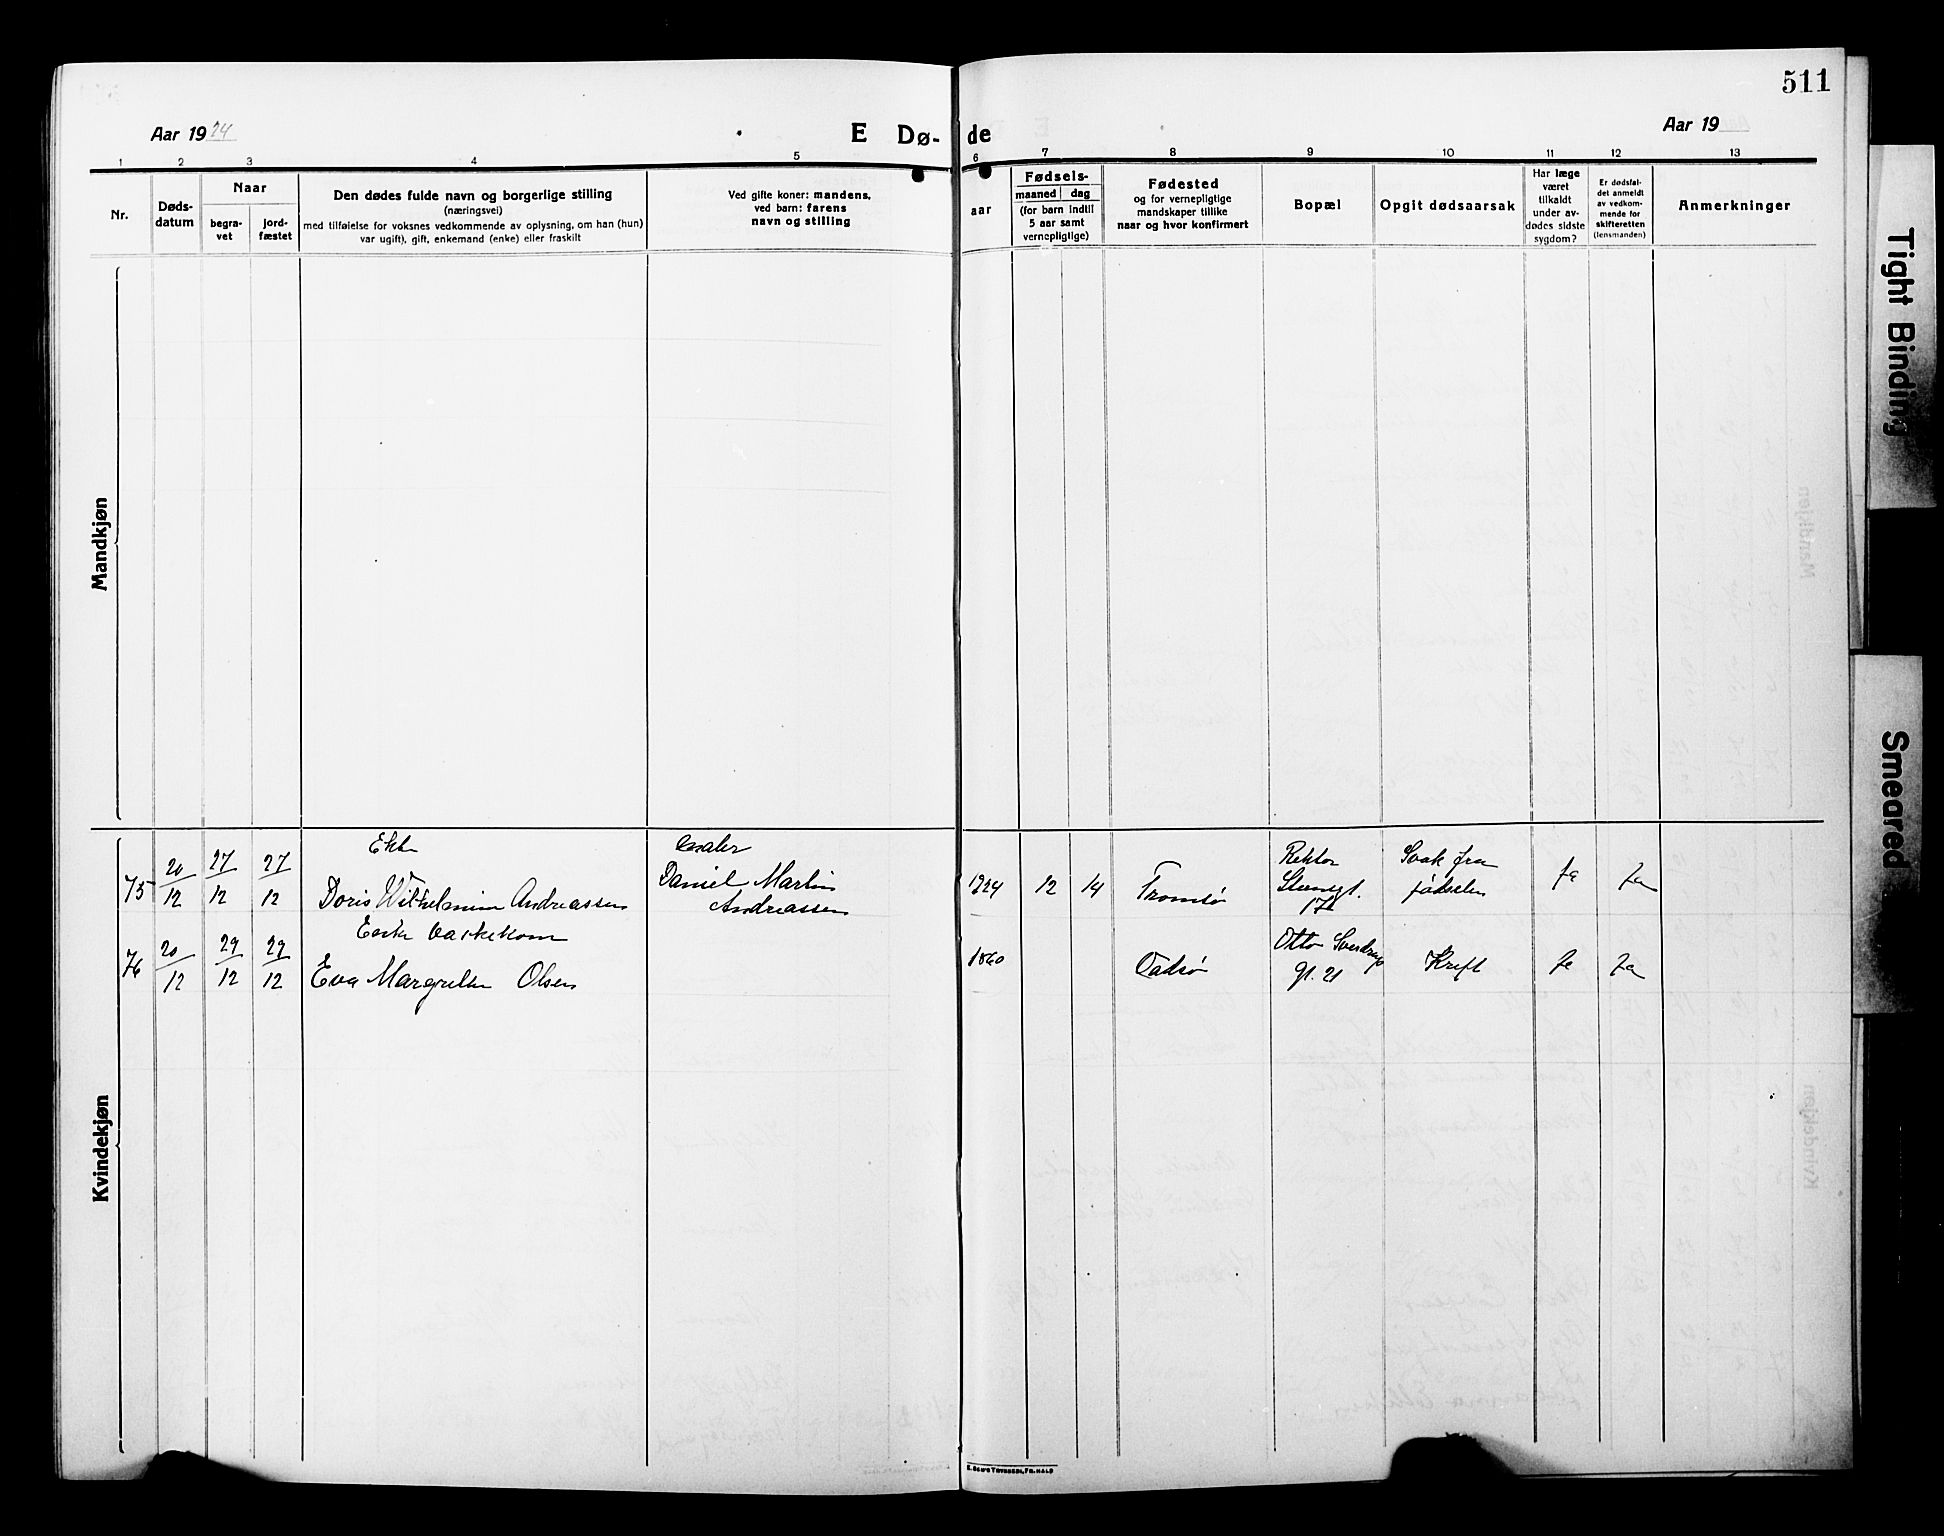 511
Aar 1924
E Dø-
de
Aar 19
1 2 3 4 5 6 7 8 9 10 11 12 13
Nr.
Døds-
datum
Naar
begra-
vet
jord-
fæstet
Den dødes fulde navn og borgerlige stilling
(næringsvei)
med tilføielse for voksnes vedkommende av oplysning, om han (hun)
var ugift), gift, enkemand (enke) eller fraskilt
Ved gifte koner: mandens,
ved barn: farens
navn og stilling
Fødsels-
aar
maaned
dag
(for barn indtil
5 aar samt
vernepligtige)
Fødested
og for vernepligtige
mandskaper tillike
naar og hvor konfirmert
Bopæl
Opgit dødsaarsak
Har læge
været
tilkaldt
under av-
dødes sidste
sygdom?
Er dødsfal-
det anmeldt
av vedkom-
mende for
skifteretten
(lensmanden)
Anmerkninger
Mandkjøn
Kvindekjøn
75
20/12
27/12
27/12
Doris Wilhelmine Andreassen
Daniel Martin
Andreassen
1924
12
14
Tromsø
Rektor
Steengt.
Svak fra
fødselen
ja
ja
76
20/12
29/12
29/12
Enke
Eva Margrethe Olsen
1860
Otto Sverdrups
gt. 21
Kreft
ja
ja
E. Sem's Trykkeri, Fr.hald
Tight Binding
Smeared